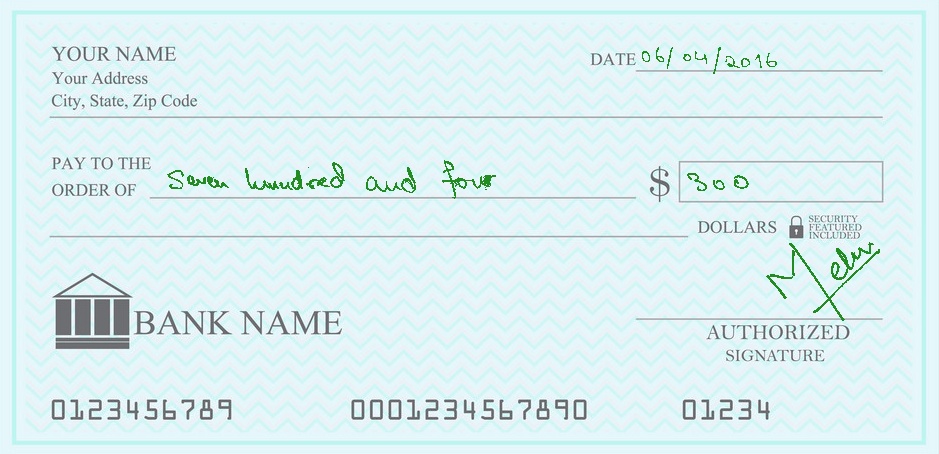 YOUR NAME
Your Address
City, State, Zip Code
DATE 06/04/2016
PAY TO THE
ORDER OF Seven hundred and four $ 300
DOLLARS SECURITY
FEATURED
INCLUDED
BANK NAME
AUTHORIZED
SIGNATURE
0123456789 0001234567890 01234